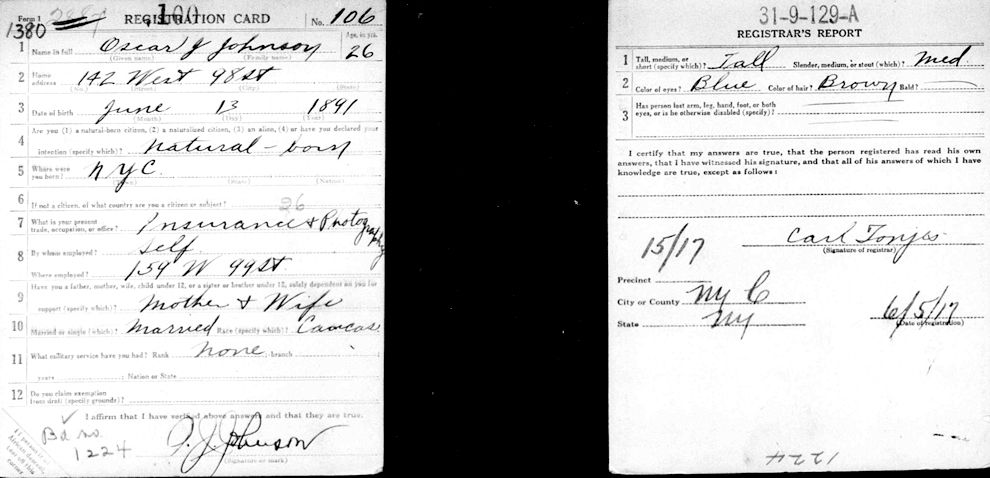 Form 1
1380
100
REGISTRATION CARD No. 106
1 Name in full Oscar J Johnson Age, in yrs. 26
(Given name) (Family name)
2 Home address 142 West 98 St
(No.) (Street) (City) (State)
3 Date of birth June 13 1891
(Month) (Day) (Year)
4 Are you (1) a natural-born citizen, (2) a naturalized citizen, (3) an alien, (4) or have you declared your
intention (specify which)? natural-born
5 Where were you born? NYC
(Town) (State) (Nation)
6 If not a citizen, of what country are you a citizen or subject?
26
7 What is your present trade, occupation, or office? Insurance & Photography
8 By whom employed? Self
Where employed? 159 W 99 St.
9 Have you a father, mother, wife, child under 12, or a sister or brother under 12, solely dependent on you for
support (specify which)? Mother & Wife
10 Married or single (which)? Married Race (specify which)? Caucas
11 What military service have you had? Rank none branch
years ; Nation or State
12 Do you claim exemption from draft (specify grounds)?
I affirm that I have verified above answers and that they are true.
Bd no.
1224
O. J. Johnson
(Signature or mark)
If person is of
African descent,
tear off this
corner
31-9-129-A
REGISTRAR'S REPORT
1 Tall, medium, or short (specify which)? Tall Slender, medium, or stout (which)? Med.
2 Color of eyes? Blue Color of hair? Brown Bald?
3 Has person lost arm, leg, hand, foot, or both
eyes, or is he otherwise disabled (specify)?
I certify that my answers are true, that the person registered has read his own
answers, that I have witnessed his signature, and that all of his answers of which I have
knowledge are true, except as follows:
Carl Tonjes
(Signature of registrar)
15/17
Precinct
City or County NY C
State NY
6/5/17
(Date of registration)
1224